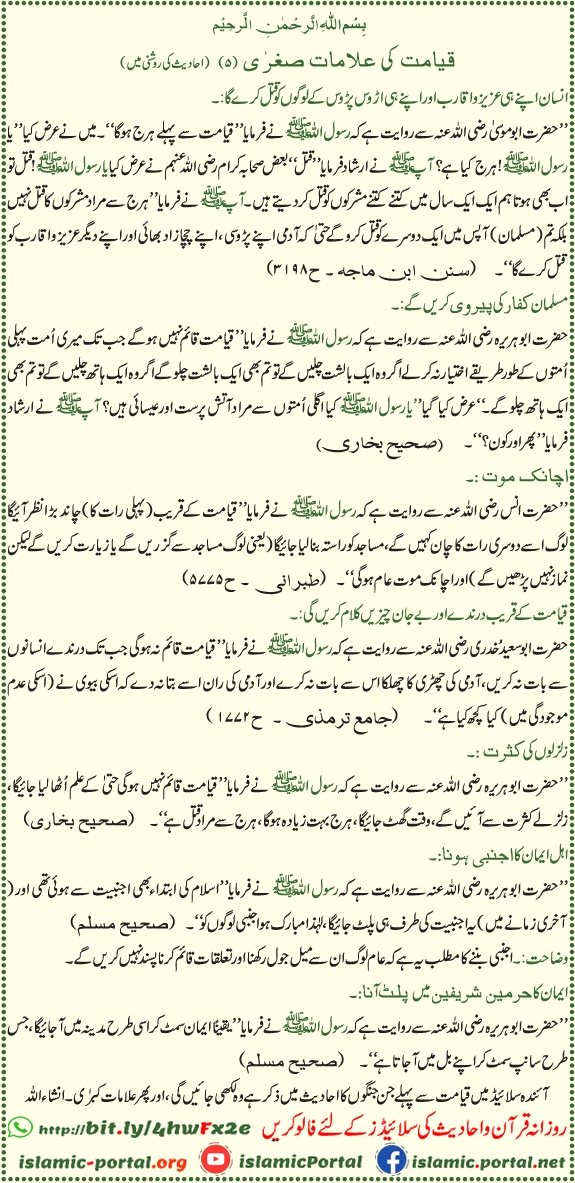 بِسْمِ اللهِ الرَّحْمٰنِ الرَّحِيْمِ
قیامت کی علامات صغرٰی (۵) (احادیث کی روشنی میں)
انسان اپنے ہی عزیز و اقارب اور اپنے ہی اڑوس پڑوس کے لوگوں کو قتل کرے گا:۔
’’حضرت ابو موسیٰ رضی اللہ عنہ سے روایت ہے کہ رسول اللہ ﷺ نے فرمایا’’ قیامت سے پہلے ہرج ہوگا‘‘۔ میں نے عرض کیا’’ یا
رسول اللہ ﷺ! ہرج کیا ہے؟ آپ ﷺ نے ارشاد فرمایا’’ قتل‘‘، بعض صحابہ کرام رضی اللہ عنہم نے عرض کیا یا رسول اللہ ﷺ! قتل تو
اب بھی ہوتا ہم ایک ایک سال میں کتنے کتنے مشرکوں کو قتل کر دیتے ہیں۔ آپ ﷺ نے فرمایا’’ ہرج سے مراد مشرکوں کا قتل نہیں
بلکہ تم (مسلمان) آپس میں ایک دوسرے کو قتل کرو گے حتیٰ کہ آدمی اپنے پڑوسی، اپنے چچازاد بھائی اور اپنے دیگر عزیز و اقارب کو
قتل کرے گا‘‘۔ (سنن ابن ماجہ ۔ ح۳۱۹۸)
مسلمان کفار کی پیروی کریں گے:۔
حضرت ابو ہریرہ رضی اللہ عنہ سے روایت ہے کہ رسول اللہ ﷺ نے فرمایا’’ قیامت قائم نہیں ہوگے جب تک میری اُمت پہلی
اُمتوں کے طور طریقے اختیار نہ کرلے اگر وہ ایک بالشت چلیں گے تو تم بھی ایک بالشت چلو گے اگر وہ ایک ہاتھ چلیں گے تو تم بھی
ایک ہاتھ چلو گے۔‘‘ عرض کیا گیا’’ یا رسول اللہ ﷺ کیا اگلی اُمتوں سے مراد آتش پرست اور عیسائی ہیں؟ آپ ﷺ نے ارشاد
فرمایا’’ پھر اور کون؟‘‘۔ (صحیح بخاری)
اچانک موت :۔
’’حضرت انس رضی اللہ عنہ سے روایت ہے کہ رسول اللہ ﷺ نے فرمایا’’ قیامت کے قریب (پہلی رات کا) چاند بڑا نظر آئیگا
لوگ اسے دوسری رات کا چان کہیں گے، مساجد کو راستہ بنا لیا جائیگا (یعنی لوگ مساجد سے گزریں گے یا زیارت کریں گے لیکن
نماز نہیں پڑھیں گے) اور اچانک موت عام ہوگی‘‘۔ (طبرانی ۔ ح۵۷۷۵)
قیامت کے قریب درندے اور بے جان چیزیں کلام کریں گی:۔
حضرت ابو سعید خُدری رضی اللہ عنہ سے روایت ہے کہ رسول اللہ ﷺ نے فرمایا’’ قیامت قائم نہ ہوگی جب تک درندے انسانوں
سے بات نہ کریں، آدمی کی چھڑی کا چھلکا اس سے بات نہ کرے اور آدمی کی ران اسے بتا نہ دے کہ اسکی بیوی نے (اسکی عدم
موجودگی میں) کیا کچھ کیا ہے‘‘۔ (جامع ترمذی ۔ ح۱۷۷۲)
زلزلوں کی کثرت :۔
’’حضرت ابو ہریرہ رضی اللہ عنہ سے روایت ہے کہ رسول اللہ ﷺ نے فرمایا’’ قیامت قائم نہیں ہوگی حتیٰ کے علم اُٹھا لیا جائیگا،
زلزلے کثرت سے آئیں گے، وقت گھٹ جائیگا، ہرج بہت زیادہ ہوگا، ہرج سے مراد قتل ہے‘‘۔ (صحیح بخاری)
اہل ایمان کا اجنبی ہونا:۔
’’حضرت ابو ہریرہ رضی اللہ عنہ سے روایت ہے کہ رسول اللہ ﷺ نے فرمایا’’ اسلام کی ابتداء بھی اجنبیت سے ہوئی تھی اور (
آخری زمانے میں) یہ اجنبیت کی طرف ہی پلٹ جائیگا، لہٰذا مبارک ہوا جنبی لوگوں کو‘‘۔ (صحیح مسلم)
وضاحت:۔ اجنبی بننے کا مطلب یہ ہے کہ عام لوگ ان سے میل جول رکھنا اور تعلقات قائم کرنا پسند نہیں کریں گے۔
ایمان کا حرمین شریفین میں پلٹ آنا:۔
’’حضرت ابو ہریرہ رضی اللہ عنہ سے روایت ہے کہ رسول اللہ ﷺ نے فرمایا’’ یقیناً ایمان سمٹ کر اسی طرح مدینہ میں آجائیگا، جس
طرح سانپ سمٹ کر اپنے بل میں آجاتا ہے‘‘۔ (صحیح مسلم)
آئندہ سلائیڈ میں قیامت سے پہلے جن جنگوں کا احادیث میں ذکر ہے وہ لکھی جائیں گی، اور پھر علامات کبرٰی۔ انشاء اللہ
روزانہ قرآن و احادیث کی سلائیڈز کے لئے فالو کریں http://bit.ly/4hwFx2e
islamic-portal.org islamicPortal islamic.portal.net